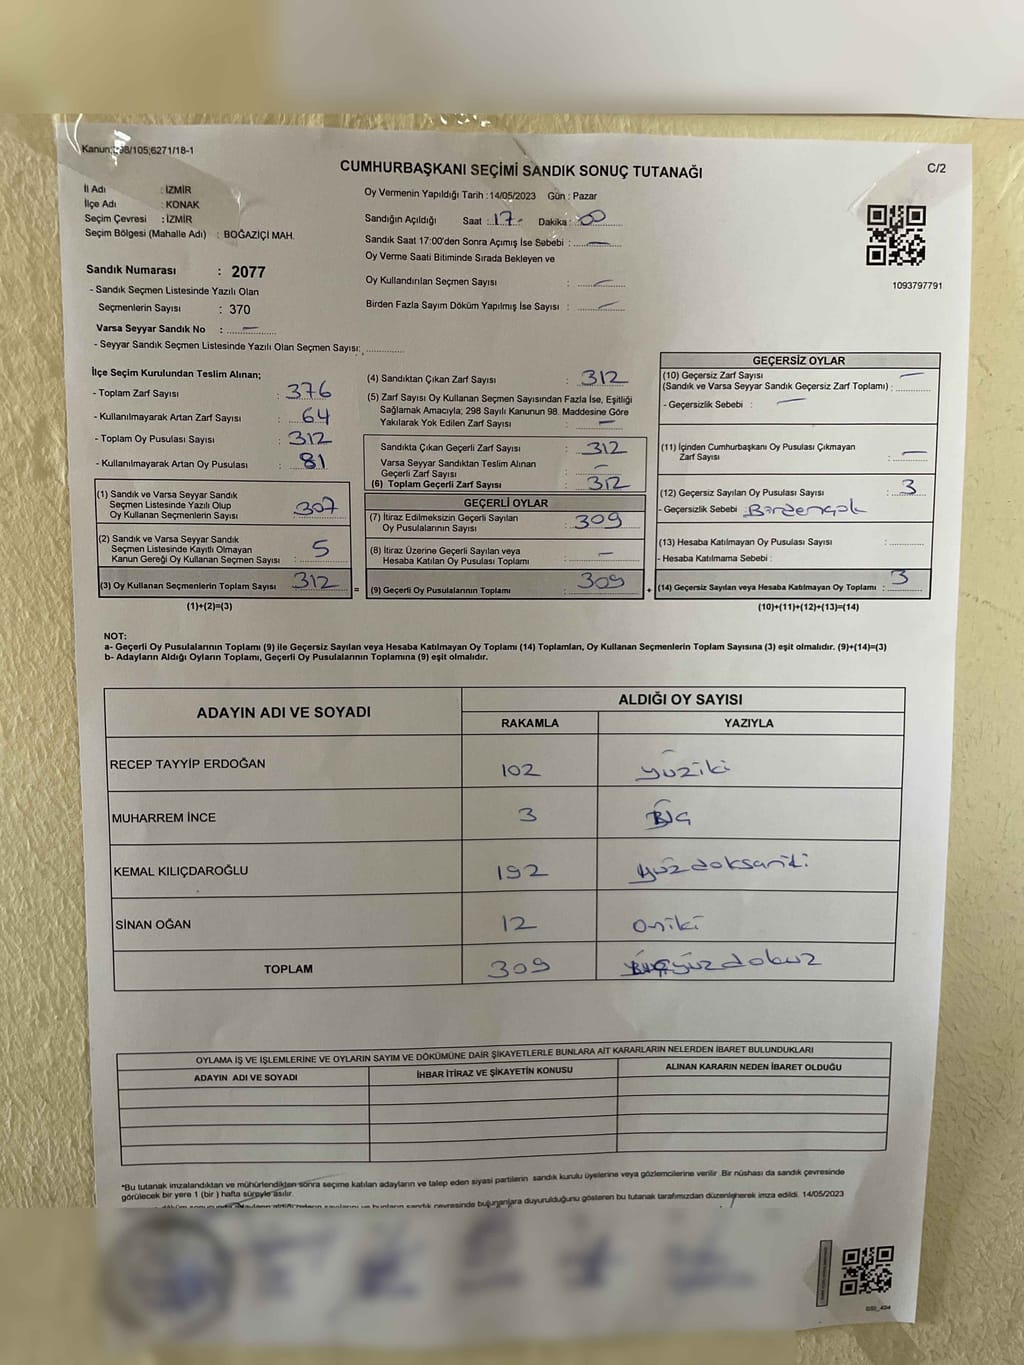 Kanun:298/105;6271/18-1
CUMHURBAŞKANI SEÇİMİ SANDIK SONUÇ TUTANAĞI
C/2
İl Adı : İZMİR
İlçe Adı : KONAK
Seçim Çevresi : İZMİR
Seçim Bölgesi (Mahalle Adı) : BOĞAZİÇİ MAH.
Sandık Numarası : 2077
- Sandık Seçmen Listesinde Yazılı Olan
Seçmenlerin Sayısı : 370
Varsa Seyyar Sandık No : —
- Seyyar Sandık Seçmen Listesinde Yazılı Olan Seçmen Sayısı:
Oy Vermenin Yapıldığı Tarih :14/05/2023 Gün : Pazar
Sandığın Açıldığı Saat : 17 - Dakika : 00
Sandık Saat 17:00'den Sonra Açımış İse Sebebi : —
Oy Verme Saati Bitiminde Sırada Bekleyen ve
Oy Kullandırılan Seçmen Sayısı : —
Birden Fazla Sayım Döküm Yapılmış İse Sayısı : —
1093797791
İlçe Seçim Kurulundan Teslim Alınan;
- Toplam Zarf Sayısı : 376
- Kullanılmayarak Artan Zarf Sayısı : 64
- Toplam Oy Pusulası Sayısı : 312
- Kullanılmayarak Artan Oy Pusulası : 81
(1) Sandık ve Varsa Seyyar Sandık
Seçmen Listesinde Yazılı Olup
Oy Kullanan Seçmenlerin Sayısı : 307
(2) Sandık ve Varsa Seyyar Sandık
Seçmen Listesinde Kayıtlı Olmayan
Kanun Gereği Oy Kullanan Seçmen Sayısı : 5
(3) Oy Kullanan Seçmenlerin Toplam Sayısı : 312
(1)+(2)=(3)
(4) Sandıktan Çıkan Zarf Sayısı : 312
(5) Zarf Sayısı Oy Kullanan Seçmen Sayısından Fazla İse, Eşitliği
Sağlamak Amacıyla; 298 Sayılı Kanunun 98. Maddesine Göre
Yakılarak Yok Edilen Zarf Sayısı : —
Sandıkta Çıkan Geçerli Zarf Sayısı : 312
Varsa Seyyar Sandıktan Teslim Alınan
Geçerli Zarf Sayısı : —
(6) Toplam Geçerli Zarf Sayısı : 312
GEÇERLİ OYLAR
(7) İtiraz Edilmeksizin Geçerli Sayılan
Oy Pusulalarının Sayısı : 309
(8) İtiraz Üzerine Geçerli Sayılan veya
Hesaba Katılan Oy Pusulası Toplamı : —
= (9) Geçerli Oy Pusulalarının Toplamı : 309
GEÇERSİZ OYLAR
(10) Geçersiz Zarf Sayısı —
(Sandık ve Varsa Seyyar Sandık Geçersiz Zarf Toplamı) :
- Geçersizlik Sebebi : —
(11) İçinden Cumhurbaşkanı Oy Pusulası Çıkmayan
Zarf Sayısı : —
(12) Geçersiz Sayılan Oy Pusulası Sayısı : 3
- Geçersizlik Sebebi : Birdençok
(13) Hesaba Katılmayan Oy Pusulası Sayısı :
- Hesaba Katılmama Sebebi :
+ (14) Geçersiz Sayılan veya Hesaba Katılmayan Oy Toplamı : 3
(10)+(11)+(12)+(13)=(14)
NOT:
a- Geçerli Oy Pusulalarının Toplamı (9) ile Geçersiz Sayılan veya Hesaba Katılmayan Oy Toplamı (14) Toplamları, Oy Kullanan Seçmenlerin Toplam Sayısına (3) eşit olmalıdır. (9)+(14)=(3)
b- Adayların Aldığı Oyların Toplamı, Geçerli Oy Pusulalarının Toplamına (9) eşit olmalıdır.
ADAYIN ADI VE SOYADI
ALDIĞI OY SAYISI
RAKAMLA YAZIYLA
RECEP TAYYİP ERDOĞAN 102 yüziki
MUHARREM İNCE 3
KEMAL KILIÇDAROĞLU 192 yüzdoksaniki
SİNAN OĞAN 12 oniki
TOPLAM 309 üçyüzdokuz
OYLAMA İŞ VE İŞLEMLERİNE VE OYLARIN SAYIM VE DÖKÜMÜNE DAİR ŞİKAYETLERLE BUNLARA AİT KARARLARIN NELERDEN İBARET BULUNDUKLARI
ADAYIN ADI VE SOYADI İHBAR İTİRAZ VE ŞİKAYETİN KONUSU ALINAN KARARIN NEDEN İBARET OLDUĞU
*Bu tutanak imzalandıktan ve mühürlendikten sonra seçime katılan adayların ve talep eden siyasi partilerin sandık kurulu üyelerine veya gözlemcilerine verilir .Bir nüshası da sandık çevresinde
görülecek bir yere 1 (bir ) hafta süreyle asılır.
bulunanlara duyurulduğunu gösteren bu tutanak tarafımızdan düzenlenerek imza edildi. 14/05/2023